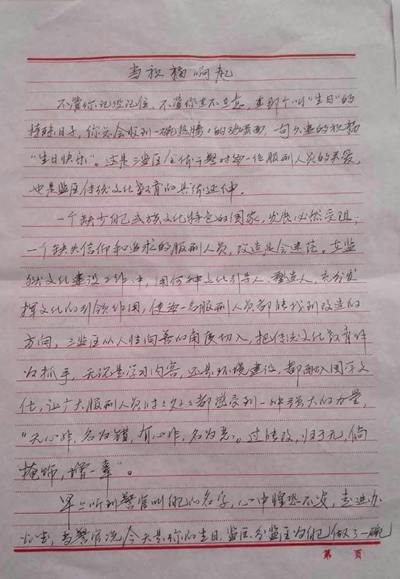 当祝福响起
不管你记没记住、不管你在不在意，在那个叫“生日”的
特殊日子，你总会收到一碗热腾腾的鸡蛋面，一句久违的祝福
“生日快乐”。这是三监区全体干警对每一位服刑人员的关爱，
也是监区传统文化教育的具体延伸。
一个缺少自己民族文化特色的国家，发展必然受阻，
一个缺失信仰和目标的服刑人员，改造也会迷茫。在监
狱文化建设工作中，用何种文化引导人、塑造人，充分发
挥文化的引领作用，使每一名服刑人员都能找到改造的
方向，三监区从人性向善的角度切入，把传统文化教育作
为抓手，无论是学习内容，还是环境建设，都融入国学文
化，让广大服刑人员时时处处都感受到一种强大的力量，
“无心非，名为错，有心非，名为恶。过能改，归于无，倘
掩饰，增一辜”。
早上听到警官叫自己的名字，心中惴惴不安，走进办
公室，当警官说今天是你的生日，监区、分监区为自己做了一碗
第 页